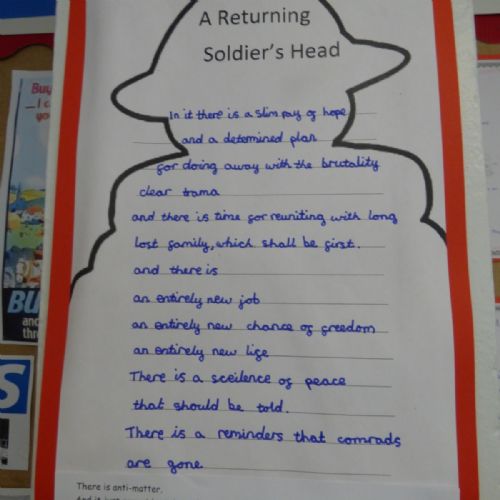 A Returning
Soldier's Head
In it there is a slim pay of hope
and a detemined plan
for doing away with the brutality
clear trama
and there is time for reuniting with long
lost family, which shall be first.
and there is
an entirely new job
an entirely new chance of freedom
an entirely new life
There is a sceilence of peace
that should be told.
There is a reminders that comrads
are gone.
There is anti-matter.
Buy
BU
and
S